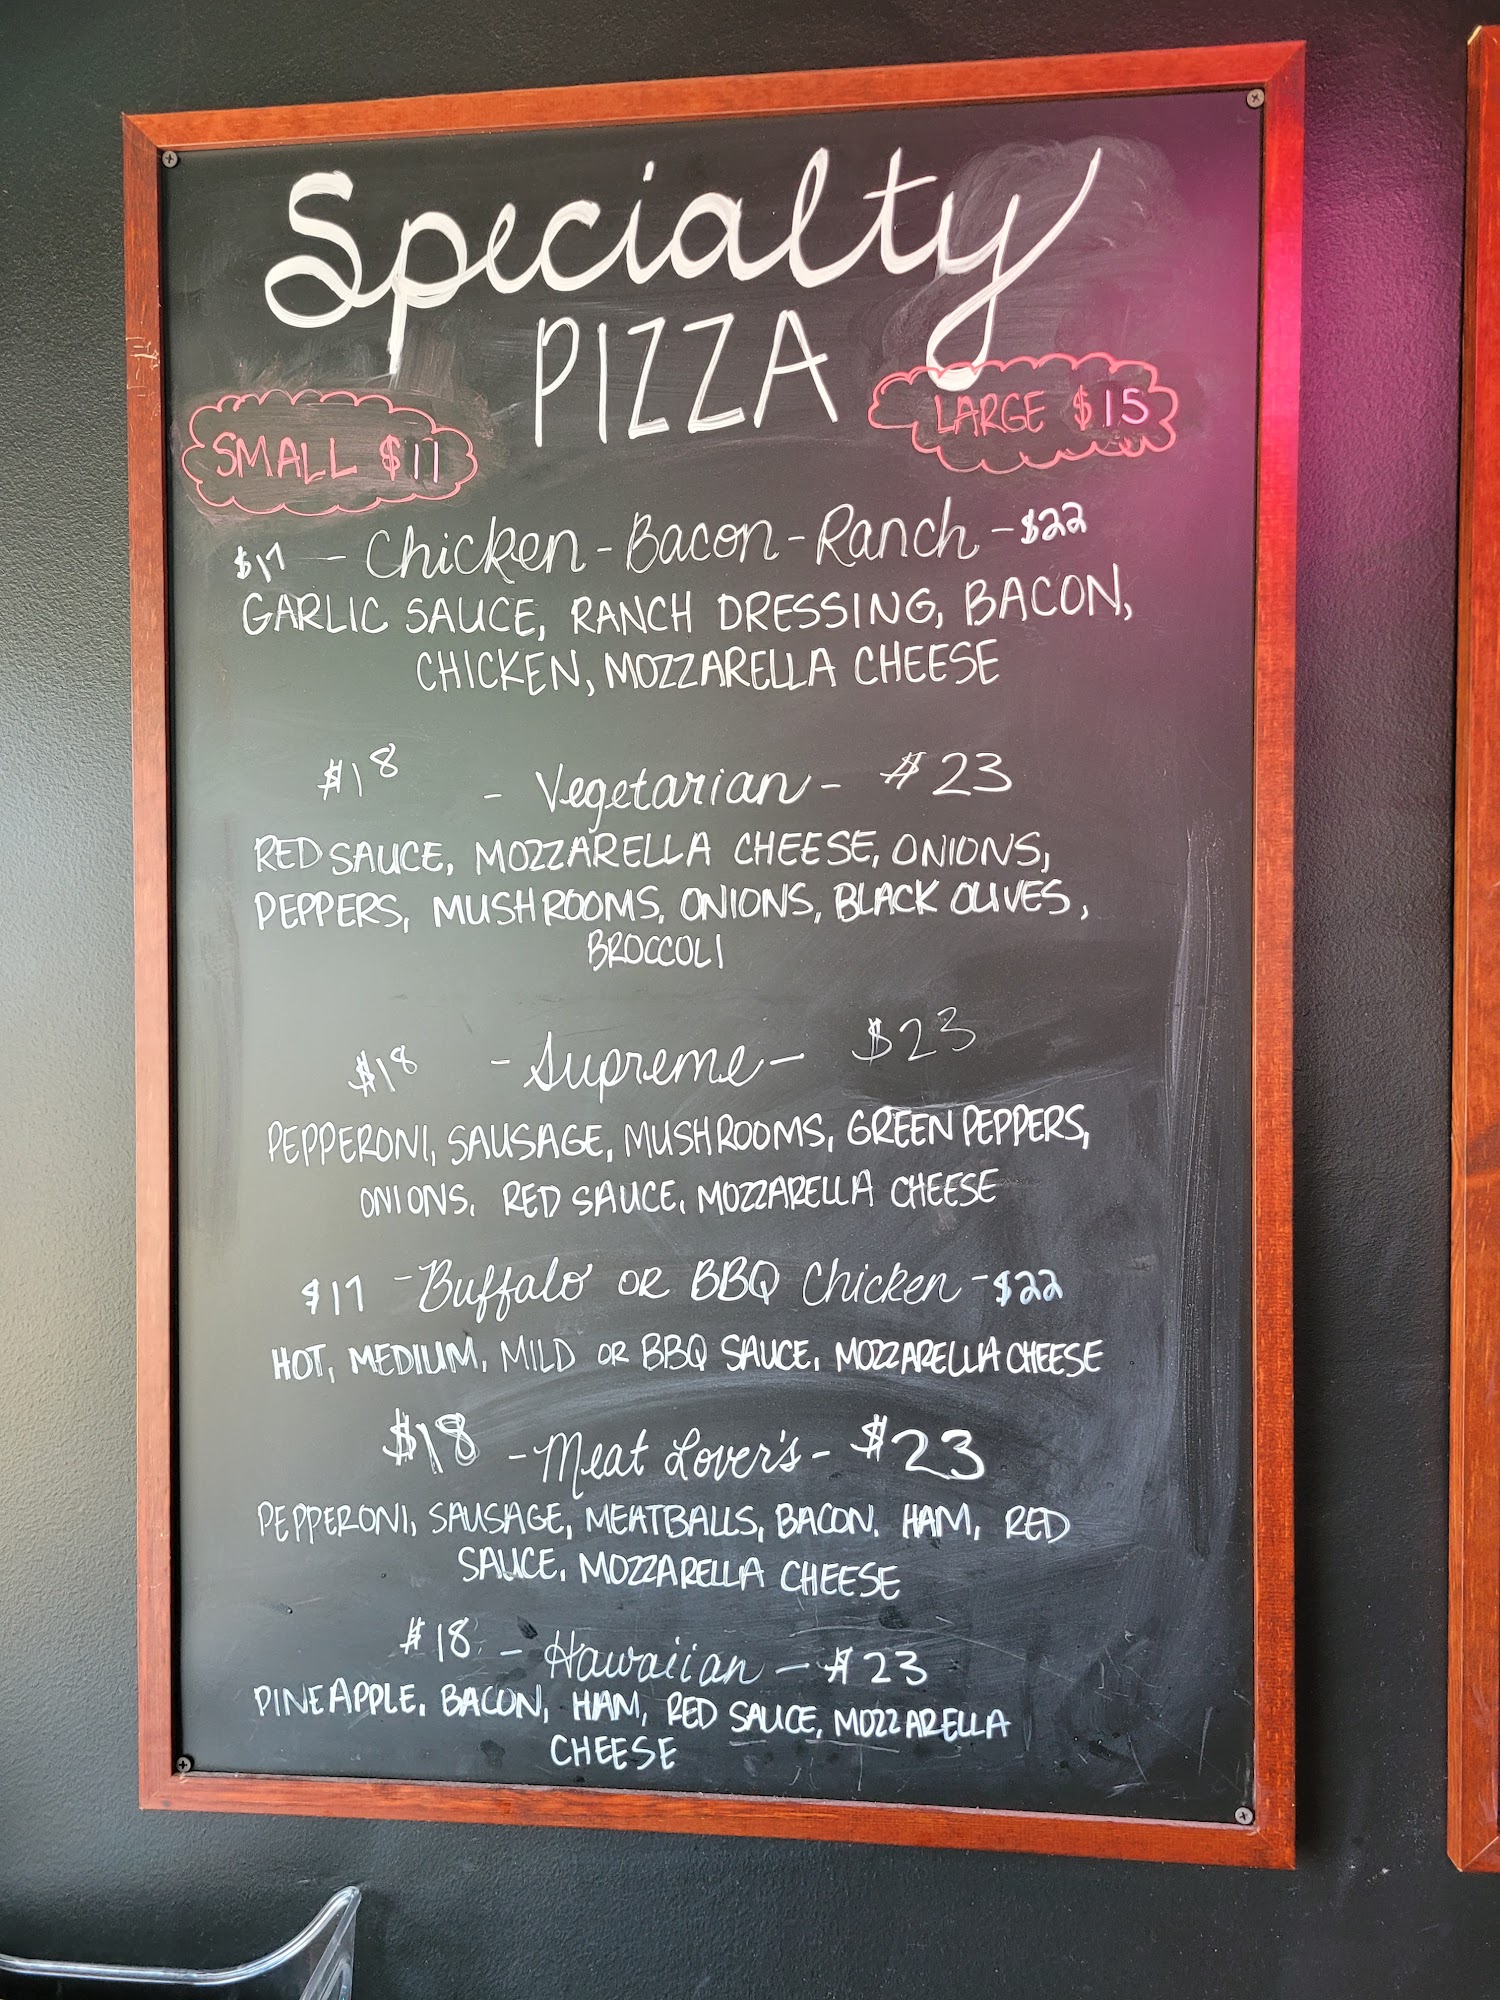 Specialty
PIZZA
SMALL $11
LARGE $15
$17 - Chicken - Bacon - Ranch - $22
GARLIC SAUCE, RANCH DRESSING, BACON,
CHICKEN, MOZZARELLA CHEESE
$18 - Vegetarian - $23
RED SAUCE, MOZZARELLA CHEESE, ONIONS,
PEPPERS, MUSHROOMS, ONIONS, BLACK OLIVES,
BROCCOLI
$18 - Supreme - $23
PEPPERONI, SAUSAGE, MUSHROOMS, GREEN PEPPERS,
ONIONS, RED SAUCE, MOZZARELLA CHEESE
$17 - Buffalo OR BBQ Chicken - $22
HOT, MEDIUM, MILD OR BBQ SAUCE, MOZZARELLA CHEESE
$18 - Meat Lover's - $23
PEPPERONI, SAUSAGE, MEATBALLS, BACON, HAM, RED
SAUCE, MOZZARELLA CHEESE
$18 - Hawaiian - $23
PINEAPPLE, BACON, HAM, RED SAUCE, MOZZARELLA
CHEESE